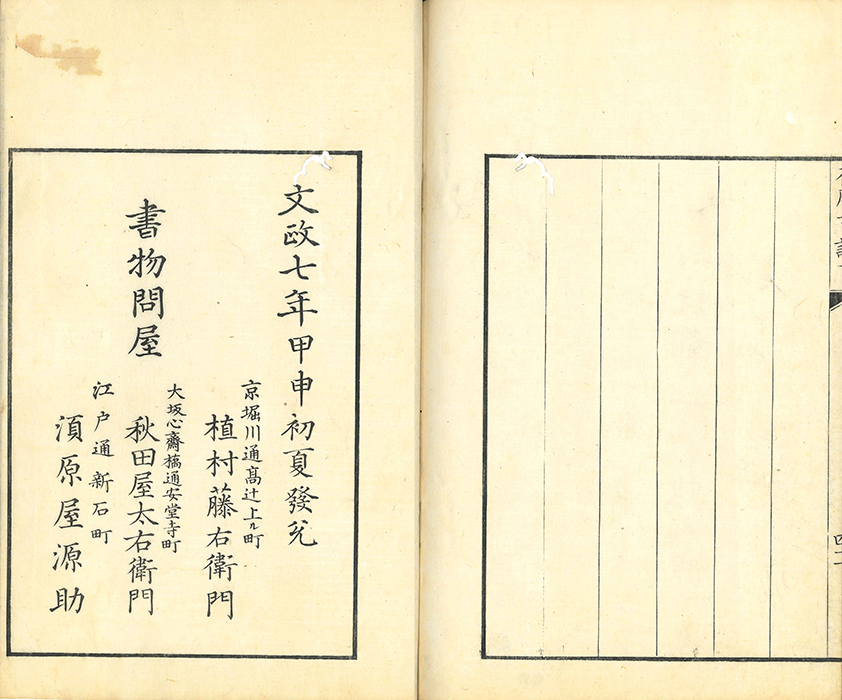 四十二
文政七年甲申初夏發兌
京堀川通髙辻上ル町
植村藤右衛門
書物問屋
大坂心齋橋通安堂寺町
秋田屋太右衛門
江戸通新石町
湏原屋源助